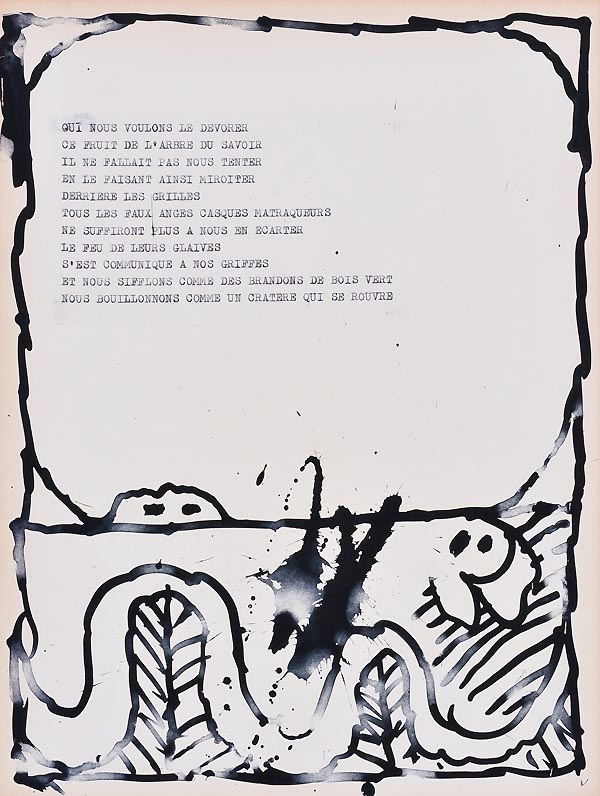 QUI NOUS VOULONS LE DEVORER
CE FRUIT DE L'ARBRE DU SAVOIR
IL NE FALLAIT PAS NOUS TENTER
EN LE FAISANT AINSI MIROITER
DERRIERE LES GRILLES
TOUS LES FAUX ANGES CASQUES MATRAQUEURS
NE SUFFIRONT PLUS A NOUS EN ECARTER
LE FEU DE LEURS GLAIVES
S'EST COMMUNIQUE A NOS GRIFFES
ET NOUS SIFFLONS COMME DES BRANDONS DE BOIS VERT
NOUS BOUILLONNONS COMME UN CRATERE QUI SE ROUVRE